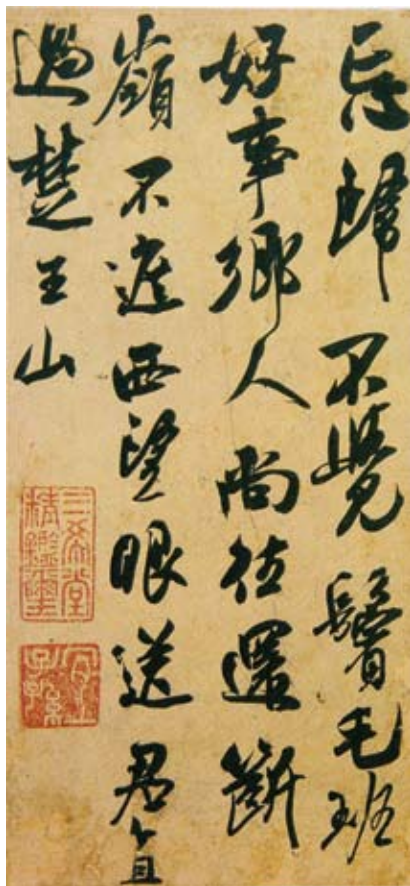 忘歸不覺鬢毛班
好事鄉人尚往還斷
嶺不遮西望眼送君直
過楚王山
三希堂精鑑璽
宜子孫